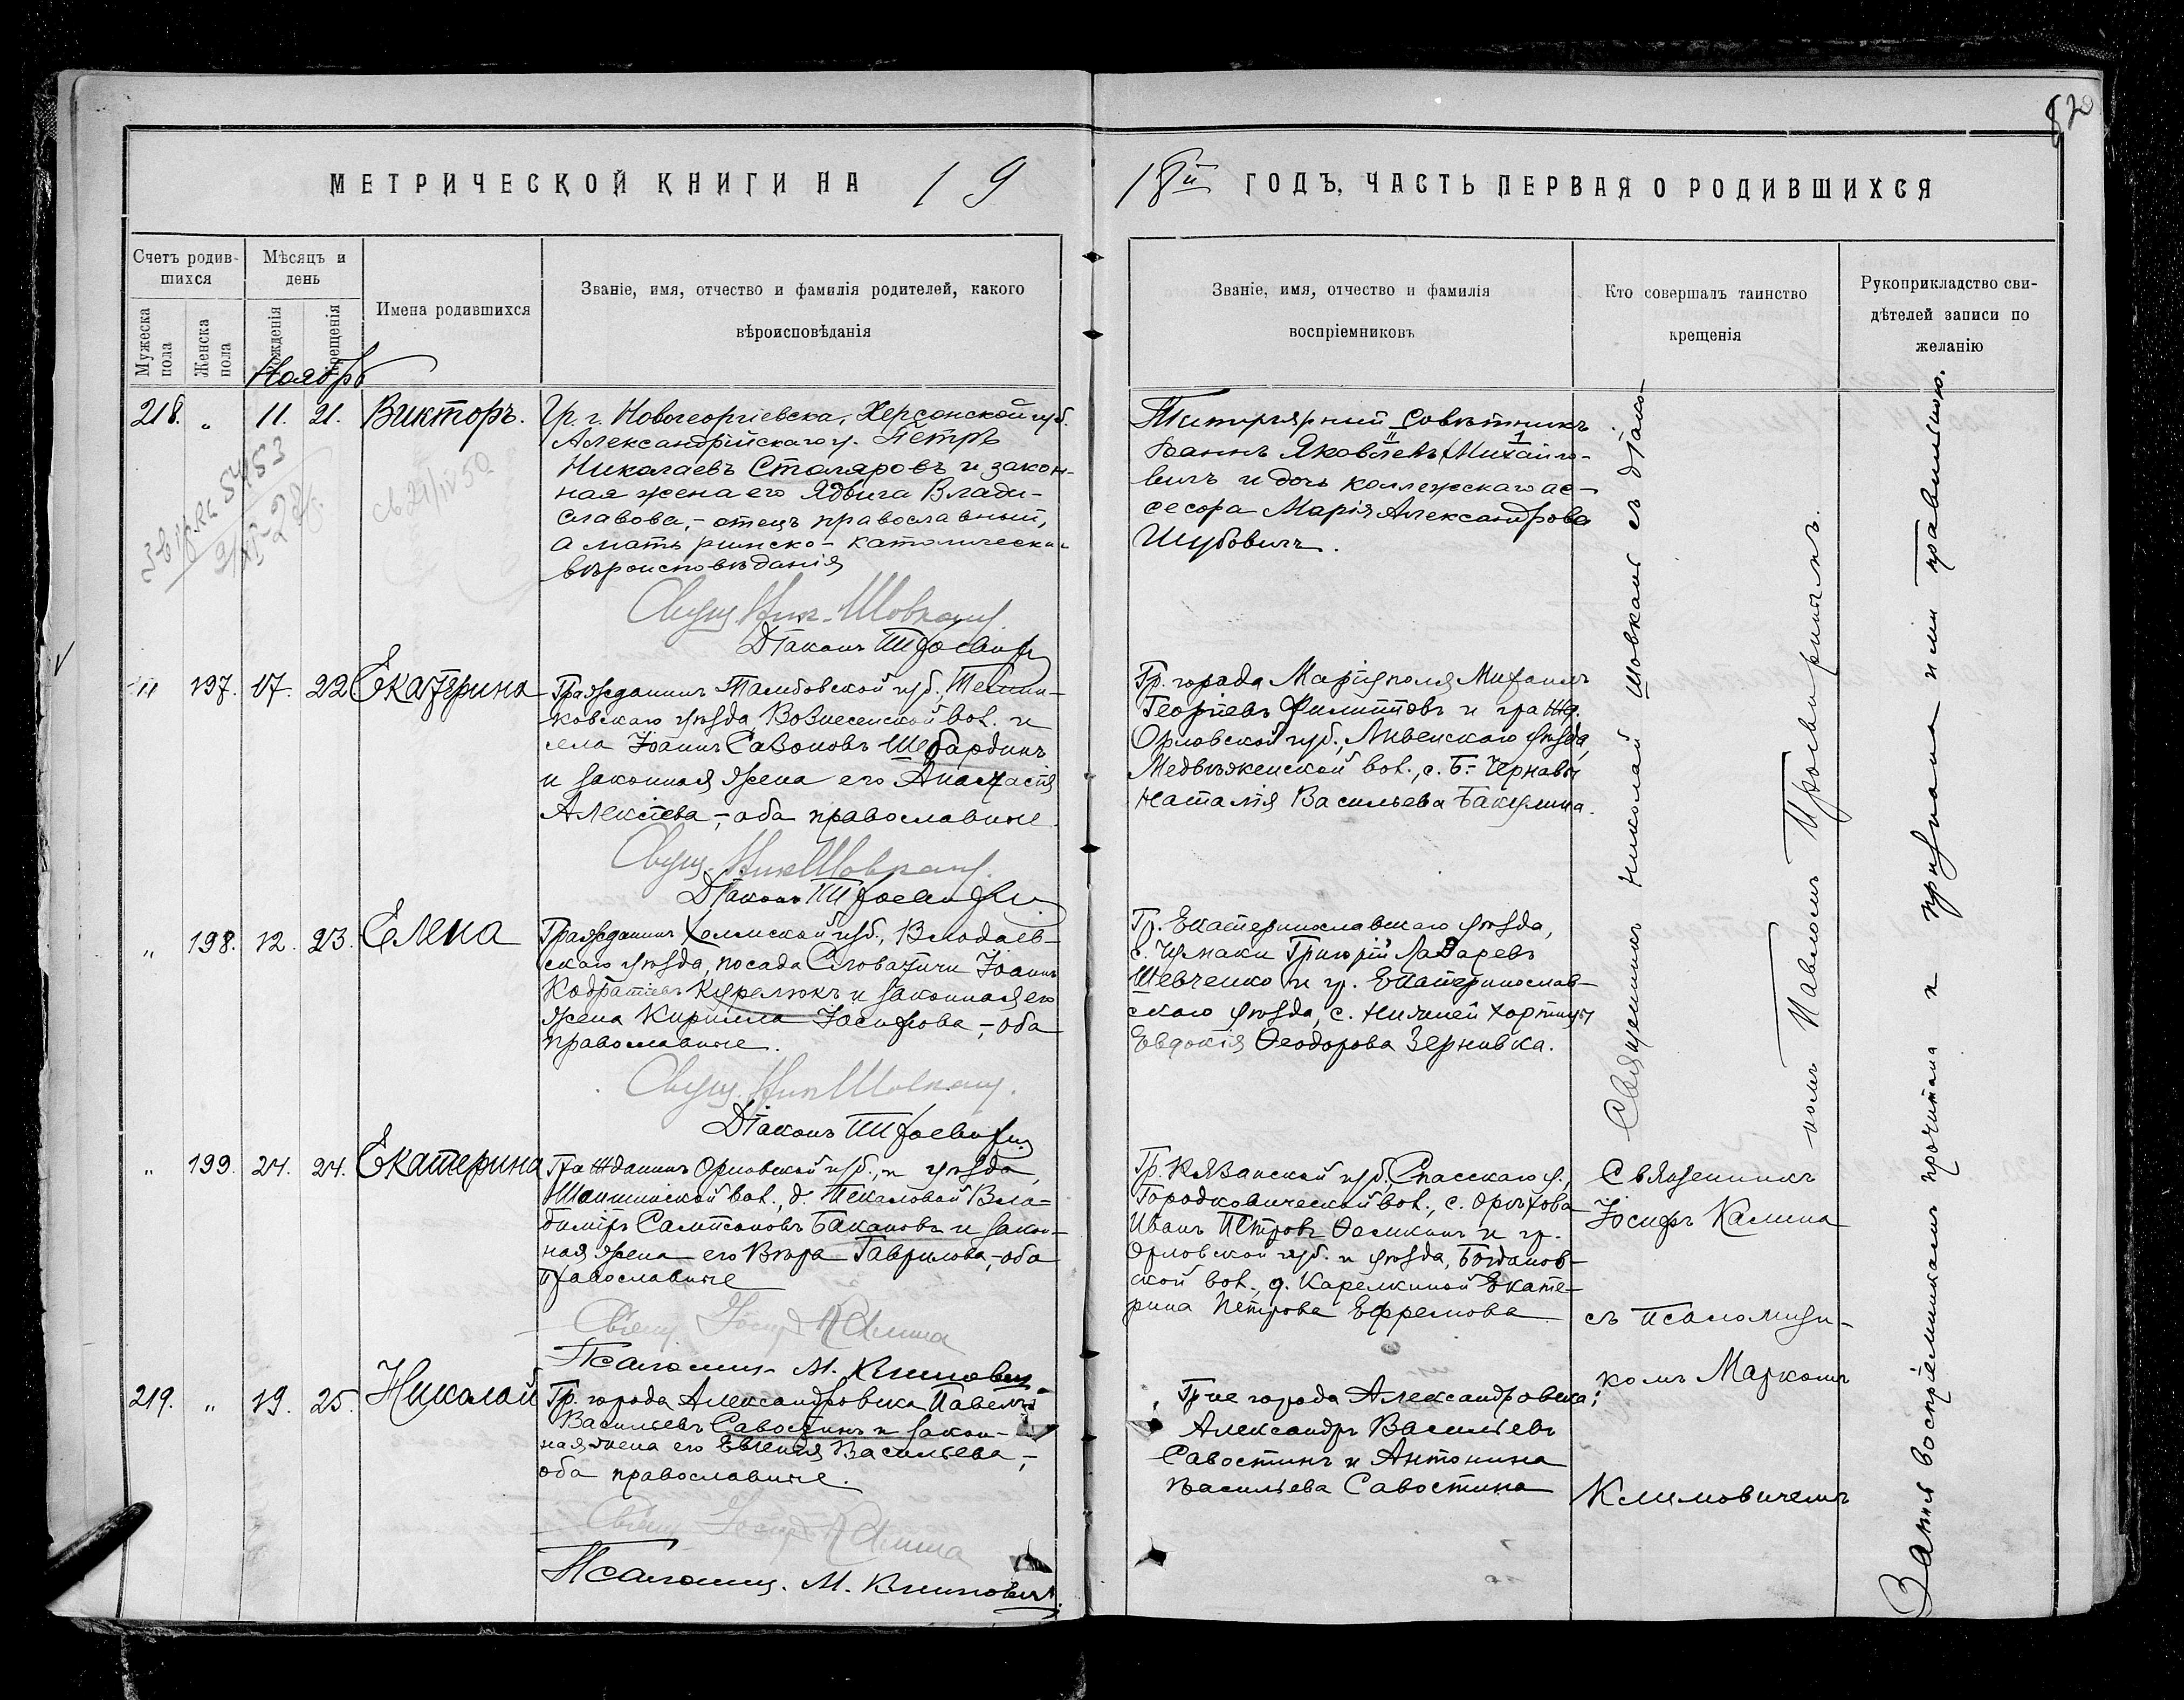 820
МЕТРИЧЕСКОЙ КНИГИ НА 19
18й ГОДЪ, ЧАСТЬ ПЕРВАЯ О РОДИВШИХСЯ
Счетъ родив-
шихся
Мужеска пола
Женска пола
Мѣсяцъ и
день
рожденія
крещенія
Имена родившихся
Званіе, имя, отчество и фамилія родителей, какого
вѣроисповѣданія
Званіе, имя, отчество и фамилія
воспріемниковъ
Кто совершалъ таинство
крещенія
Рукоприкладство сви-
дѣтелей записи по
желанію
Ноябрь
218. " 11. 21. Викторъ.
Гр. г. Новогеоргіевска, Херсонской губ.
Александрійскаго у. Петръ
Николаевъ Столяровъ и закон-
ная жена его Ядвига Влади-
славова, - отецъ православный,
а мать римско-католическ.
вѣроисповѣданія
Свящ. Ник. Шовкопл.
Діаконъ
Титулярный Совѣтникъ
Іоаннъ Яковлевъ Михайло-
вичъ и дочь коллежскаго ас-
сесора Марія Александрова
Шубовичъ.
" 197. 17. 22 Екатерина
Гражданинъ Тамбовской губ. Темни-
ковскаго уѣзда Вознесенской вол. и
села Іоаннъ Савоновъ Шебардинъ
и законная жена его Анастасія
Алексѣева, - оба православные
Свящ. Ник Шовкопл.
Діаконъ
Гр. города Маріуполя Михаилъ
Георгіевъ Филипповъ и гражд.
Орловской губ., Ливенскаго уѣзда,
Медвѣженской вол., с. Б.- Чернавы
Наталія Васильева Бакулина.
" 198. 12. 23. Елена
Гражданинъ Холмской губ., Влодав-
скаго уѣзда, посада Словатичи Іоаннъ
Кодратіевъ Курелюкъ и законная его
жена Кирилла Іосифова, - оба
православные.
Свящ. Ник Шовкопл.
Діаконъ
Гр. Екатеринославскаго уѣзда,
с. Чумаки Григорій Лазаревъ
Шевченко и гр. Екатеринослав-
скаго уѣзда, с. Нижней Хортицы
Евдокія Ѳеодорова Зернивка.
Священникъ Николай Шовкопл съ діако-
номъ Павломъ
" 199. 24. 24. Екатерина
Гражданинъ Орловской губ., и уѣзда,
вол., д. Вла-
диміръ Сампсоновъ Бакановъ и закон-
ная жена его Вѣра Гаврилова, - оба
православные
Свящ Іосифъ Калина
Псаломщ. М. Климович.
Гр. Рязанской губ. Спасскаго у.,
Городковической вол., с. Орѣхова
Иванъ Петровъ Ѳомкинъ и гр.
Орловской губ. и уѣзда, Богданов-
ской вол., д. Карелкиной Екате-
рина Петрова Ефремова
Священникъ
Іосифъ Калина
съ псаломщи-
комъ Маркомъ
Климовичемъ
219. " 19. 25. Николай
Гр. города Александровска Павелъ
Васильевъ Савостинъ и закон-
ная жена его Евгенія Васильева, -
оба православные.
Свящ Іосифъ Калина
Псаломщ. М. Климович.
Гр-не города Александровска:
Александръ Васильевъ
Савостинъ и Антонина
Васильева Савостина
Запись воспріемникамъ прочитана и признана ими правильною.